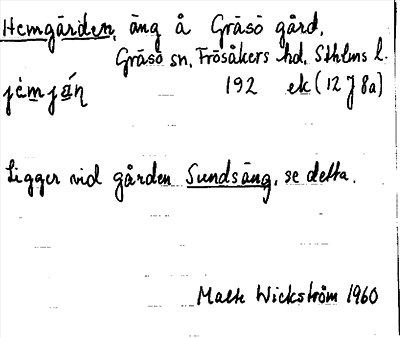 Hemgärden, äng å Gräsö gård,
Gräsö sn, Frösåkers hd, Sthlms l.
192 ek (12 J 8a)
Ligger vid gården Sundsäng, se detta.
Malte Wickström 1960